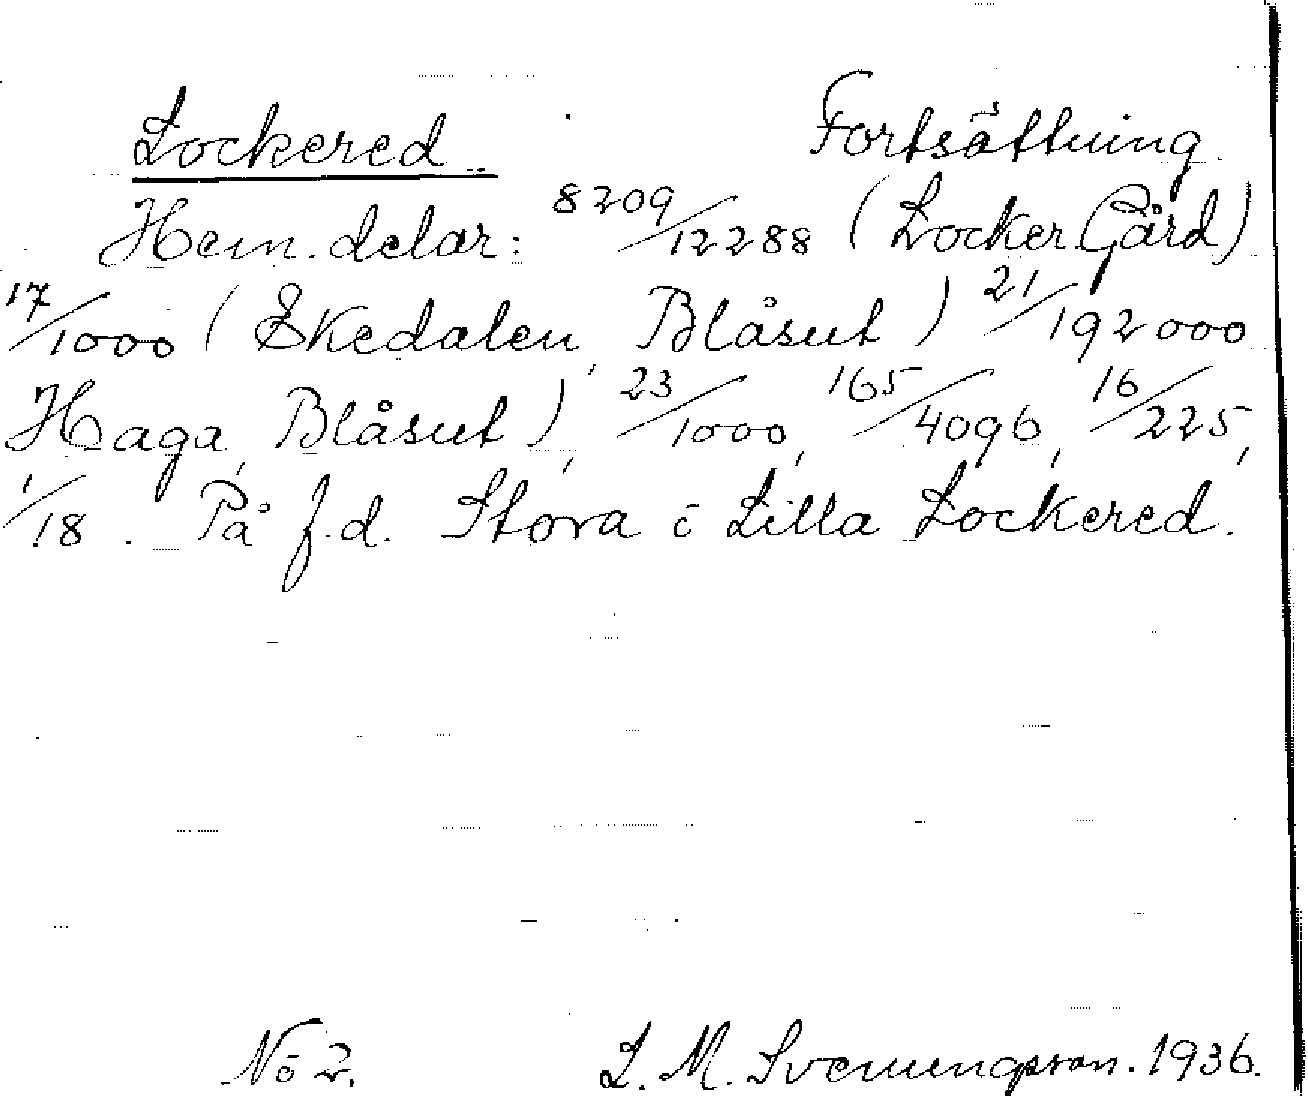 Lockered. Fortsättning.
Hem. delar: 8209/12288 (Locker Gård)
17/1000 (Ekedalen, Blåsut) 21/192000
Haga, Blåsut), 23/1000, 165/4096, 16/225,
1/18. På f.d. Stora o Lilla Lockered.
No 2. L. M. Svenungsson. 1936.